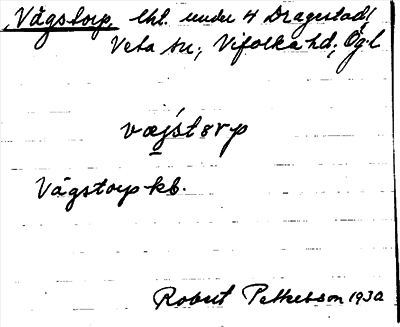 Vägstorp, lht. under 4 Dragestad,
Veta sn., Vifolka hd, Ög.l
væjstərp
Vägstorp kb.
Robert Pettersson 1930